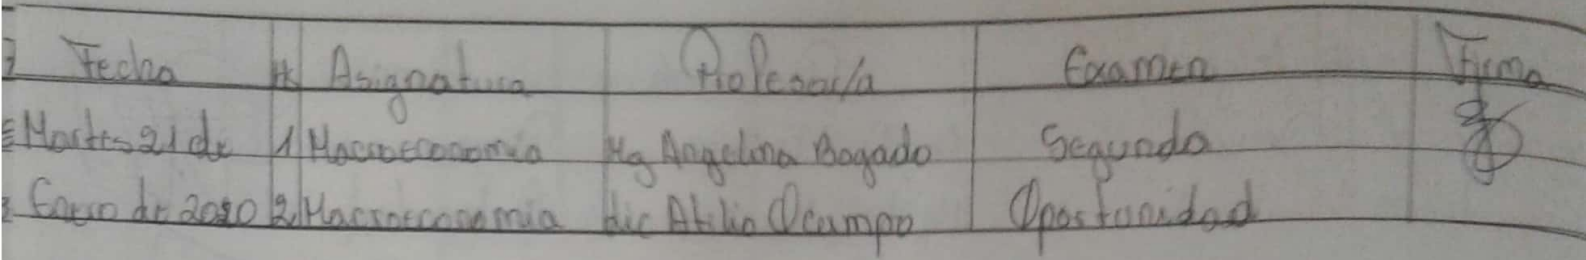 Fecha H Asignatura Profesor/a Examen Firma
Martes 21 de 1 Macroeconomia Mg Angelina Bogado Segunda
Enero de 2020 2 Macroeconomia Lic Atilio Ocampo Oportunidad